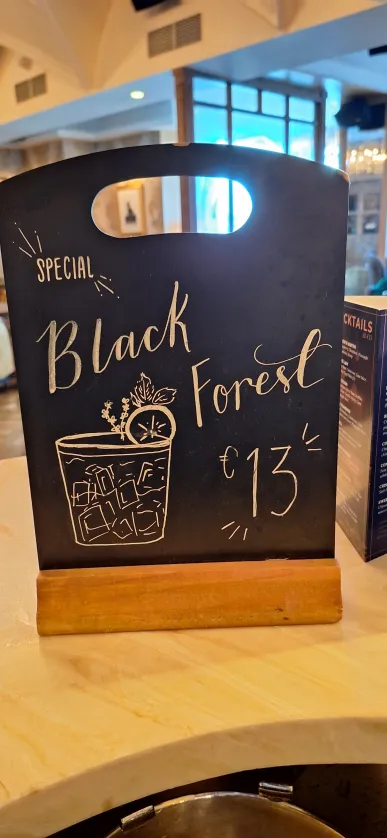 SPECIAL
Black
Forest
€13
CKTAILS